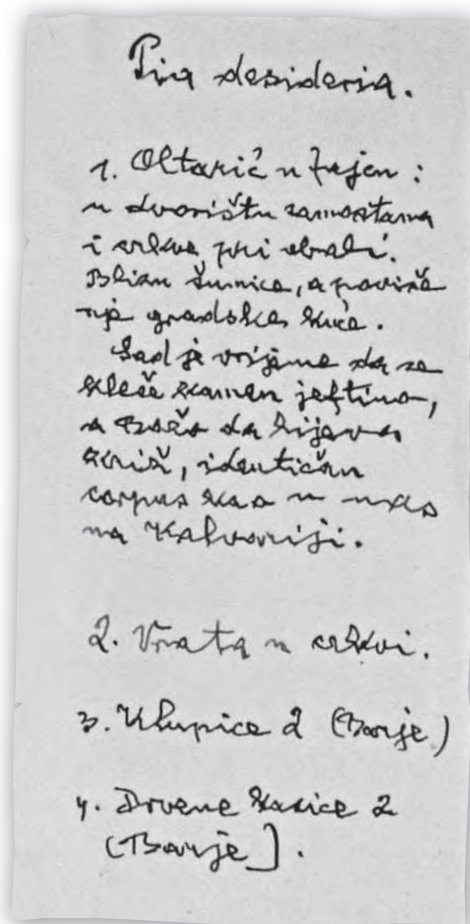 Pia desideria.
1. Oltarić u :
u dvorištu samostana
i crkve pri obali.
Blizu šumica, a poviše
nje gradske kuće.
Sad je vrijeme da se
kleše kamen jeftino,
a Bošo da lijeva
križ, identičan
corpus kao u nas
na Kalvariji.
2. Vrata u crkvi.
3. Klupice 2 (Banje)
4. Drvene kasice 2
(Banje].